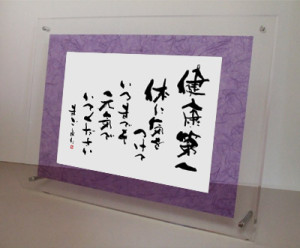 健康第一
体に気を
つけて
いつまでも
元気で
いてください